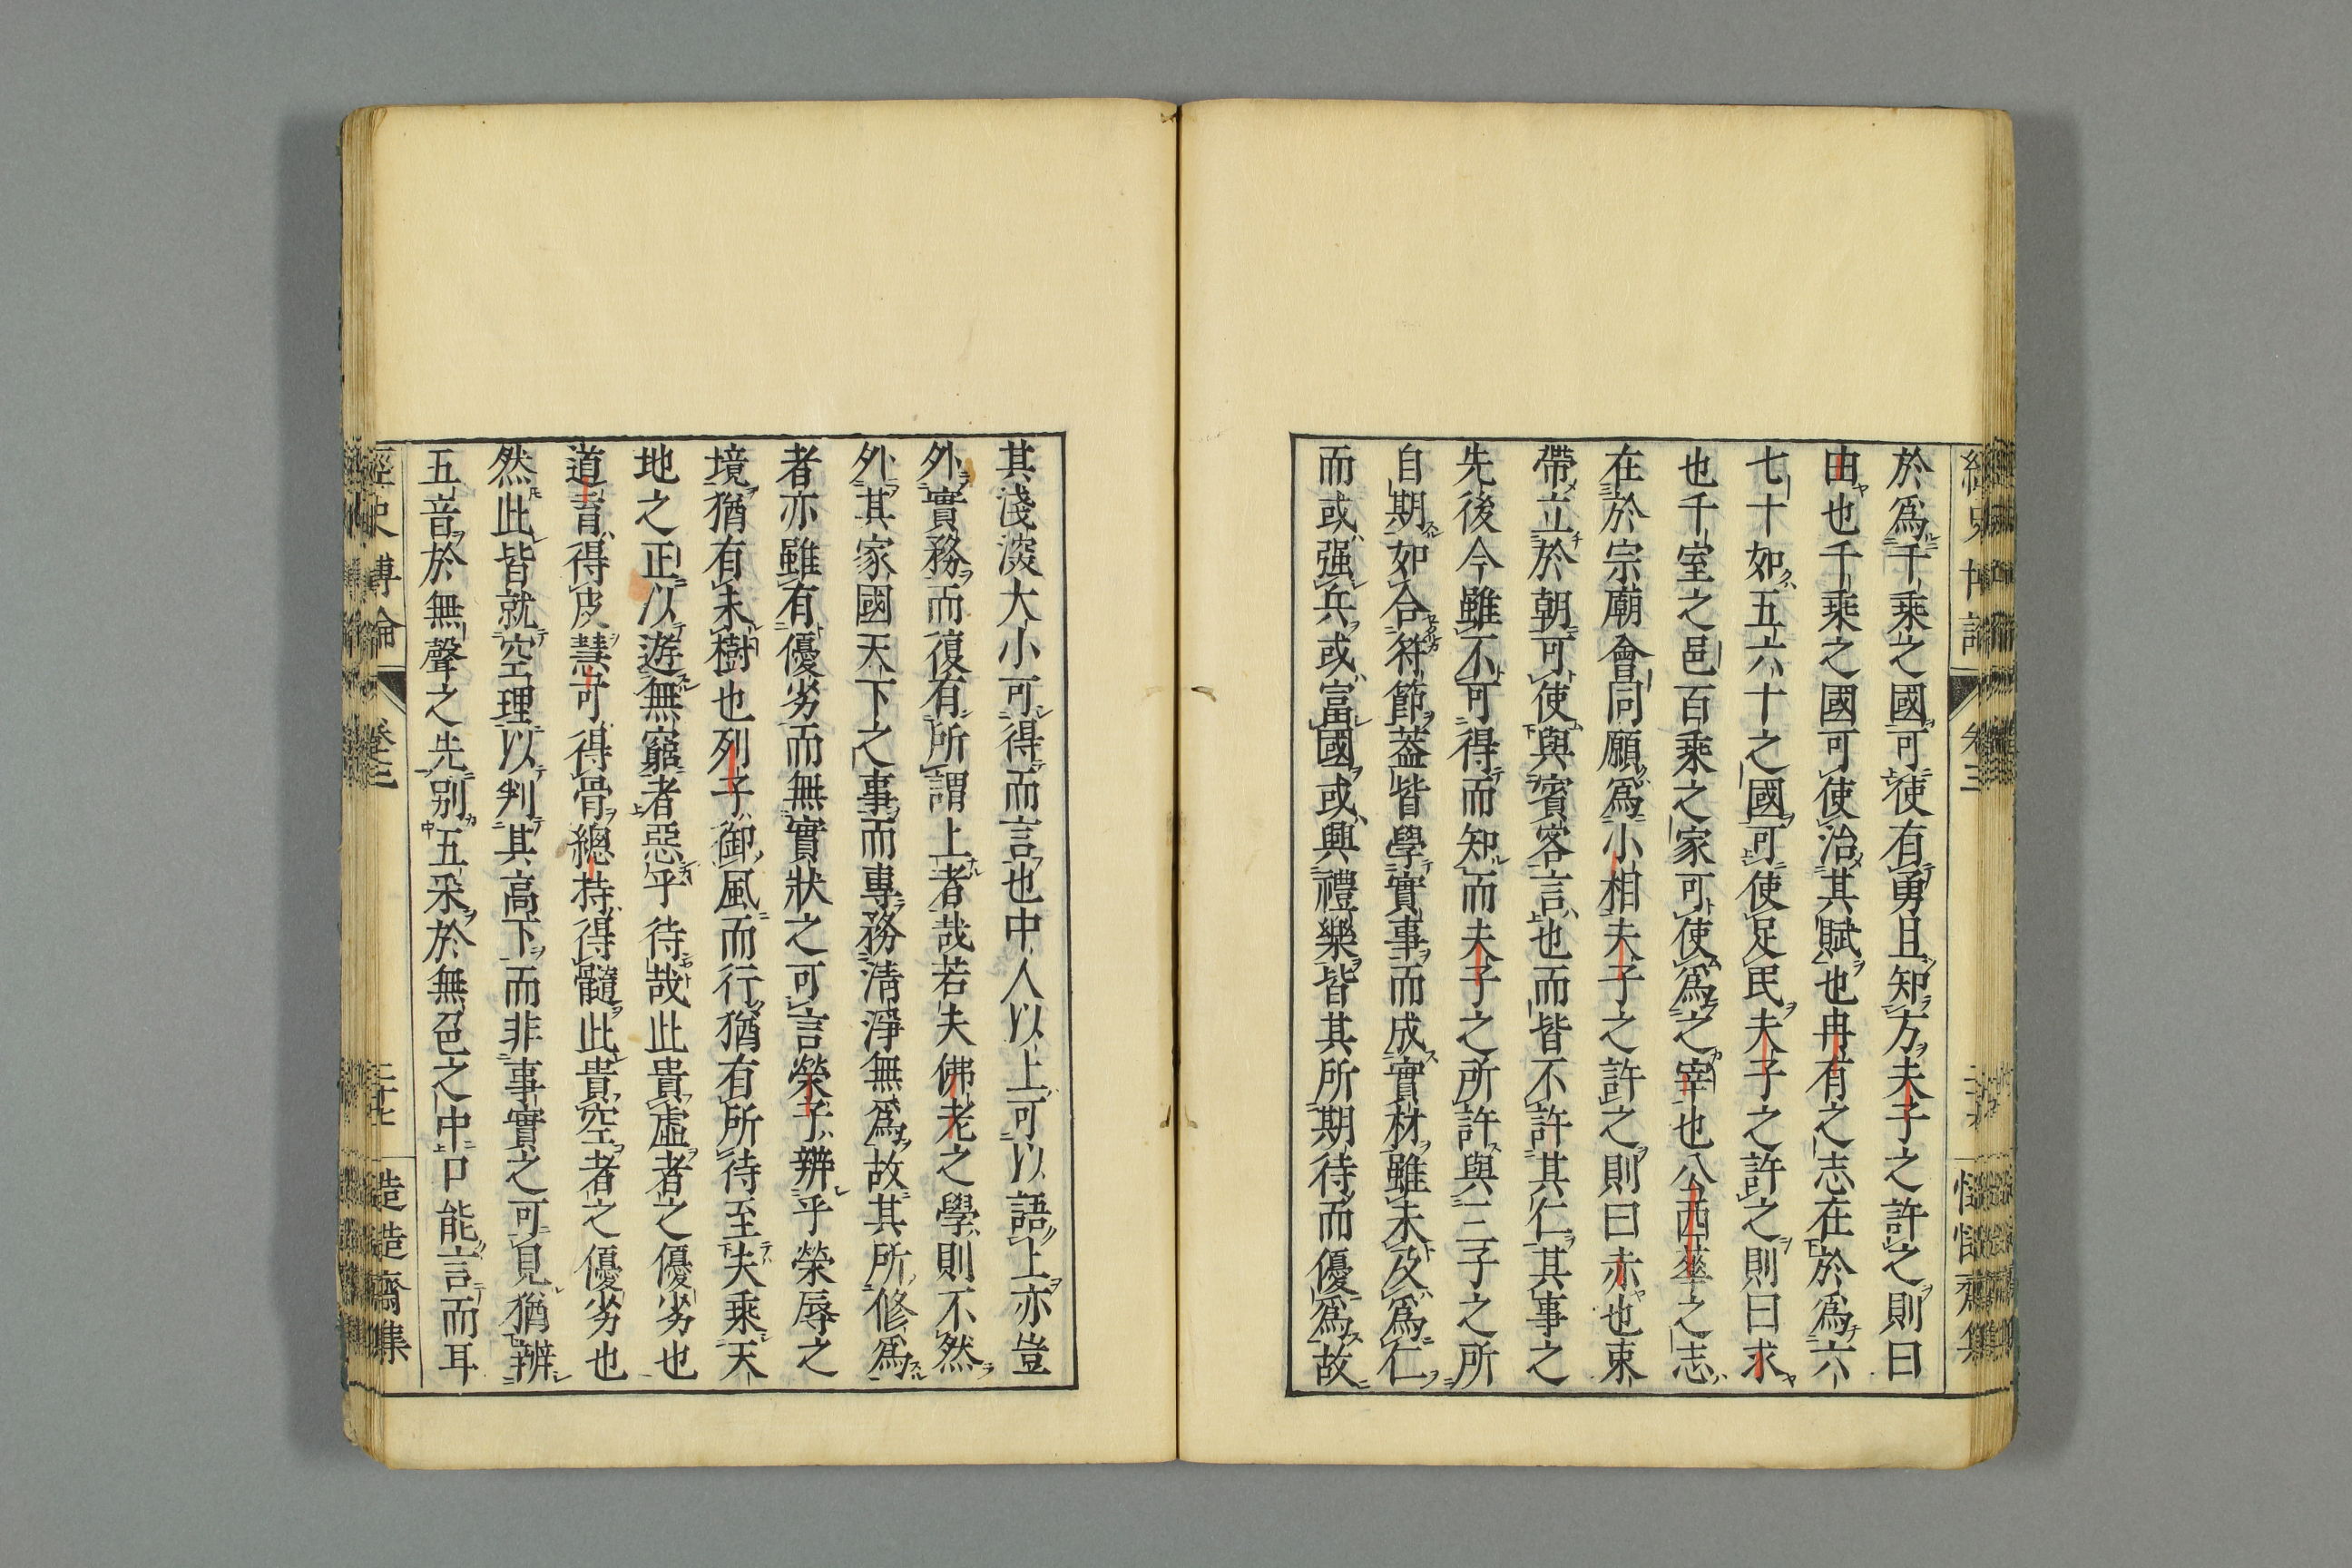 於爲千乘之國可使有勇且知方夫子之許之則曰
由也千乘之國可使治其賦也冉有之志在於爲六
七十如五六十之國可使足民夫子之許之則曰求
也千室之邑百乘之家可使爲之宰也公西華之志
在於宗廟會同願爲小相夫子之許之則曰赤也束
帶立於朝可使與賓客言也而皆不許其仁其事之
先後今雖不可得而知而夫子之所許與三子之所
自期如合符節蓋皆學實事而成實材雖未及爲仁
而或强兵或富國或興禮樂皆其所期待而優爲故
其淺深大小可得而言也中人以上可以語上亦豈
外實務而復有所謂上者哉若夫佛老之學則不然
外其家國天下之事而專務淸淨無爲故其所修爲
者亦雖有優劣而無實狀之可言榮子辨乎榮辱之
境猶有未樹也列子御風而行猶有所待至夫乘天
地之正以遊無窮者惡乎待哉此貴虛者之優劣也
道育得皮慧可得骨總持得髓此貴空者之優劣也
然此皆就空理以判其高下而非事實之可見猶辨
五音於無聲之先別五采於無色之中口能言而耳
經史博論 卷三 二十七 造造齋集